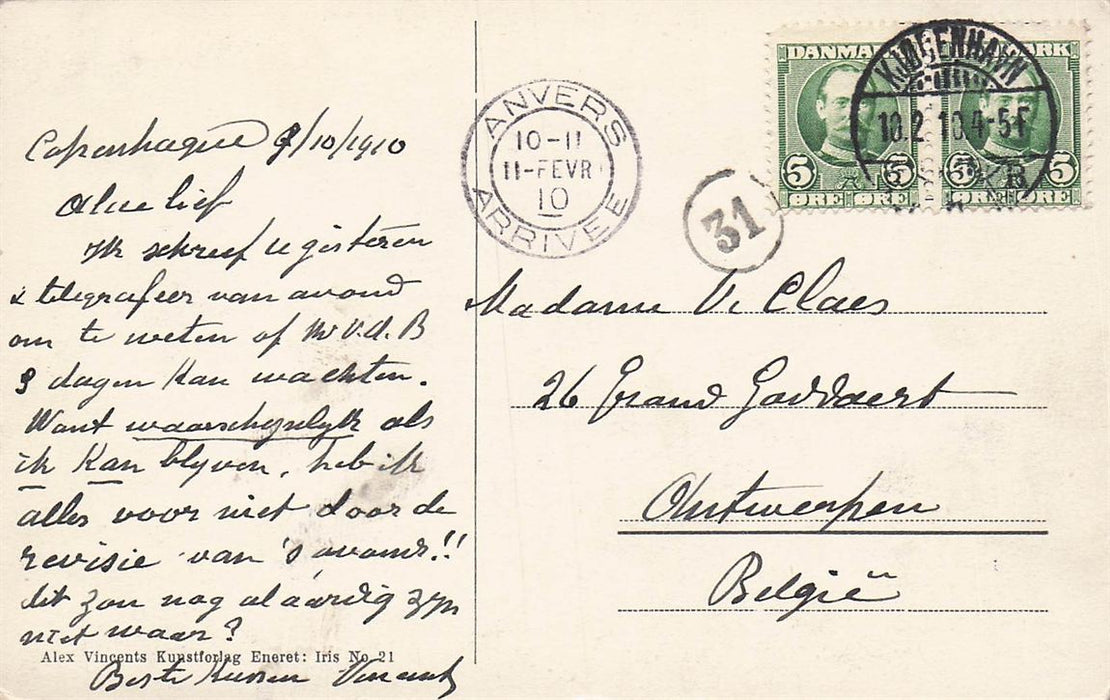 Copenhague 9/10/1910
Alue lief
Ik schreef u gisteren
& telegrafeer van avond
om te weten of Mr V.d.B
3 dagen kan wachten.
Want waarschynlyk als
ik kan blyven, heb ik
alles voor niet door de
revisie van 's avonds!!
dit zou nog al aardig zyn
niet waar?
Beste kussen Vincent
Alex Vincents Kunstforlag Eneret: Iris No 21
ANVERS
10-11
11-FEVR
10
ARRIVEE
31
DANMARK
5 5
ØRE ØRE
5 5
ØRE ØRE
KJØBENHAVN
10.2 10.4-5F
B
Madame V. Claes
26 Grand Goddaert
Antwerpen
België